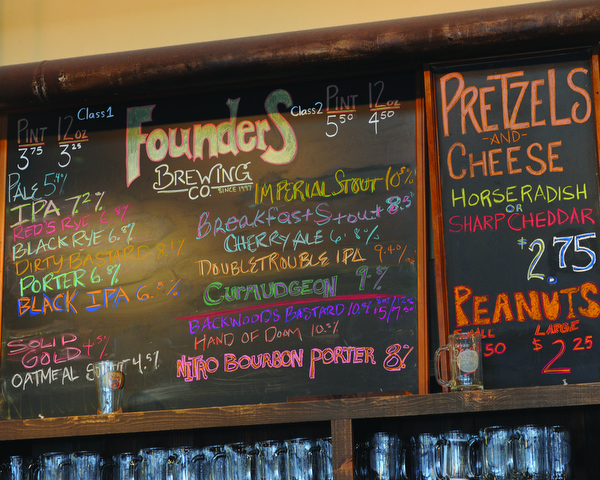 Class1
PINT 12oz
3.75 3.25
PALE 5.4%
IPA 7.2%
RED'S RYE 6.8%
BLACK RYE 6.8%
DIRTY BASTARD 8.1%
PORTER 6.8%
BLACK IPA 6.0%
SOLID
GOLD
OATMEAL 4.5%
FOUNDERS
BREWING
CO. SINCE 1997
Class2
PINT 12oz
5.50 4.50
IMPERIAL STOUT 10.5%
Breakfast Stout 8.3%
CHERRY ALE 6.8%
DOUBLE TROUBLE IPA 9.4%
CURMUDGEON 9.8%
BACKWOODS BASTARD 10.2%
HAND OF DOOM 10.5%
NITRO BOURBON PORTER 8%
PRETZELS
-AND-
CHEESE
HORSERADISH
OR
SHARP CHEDDAR
$2.75
PEANUTS
LARGE
50 $2.25